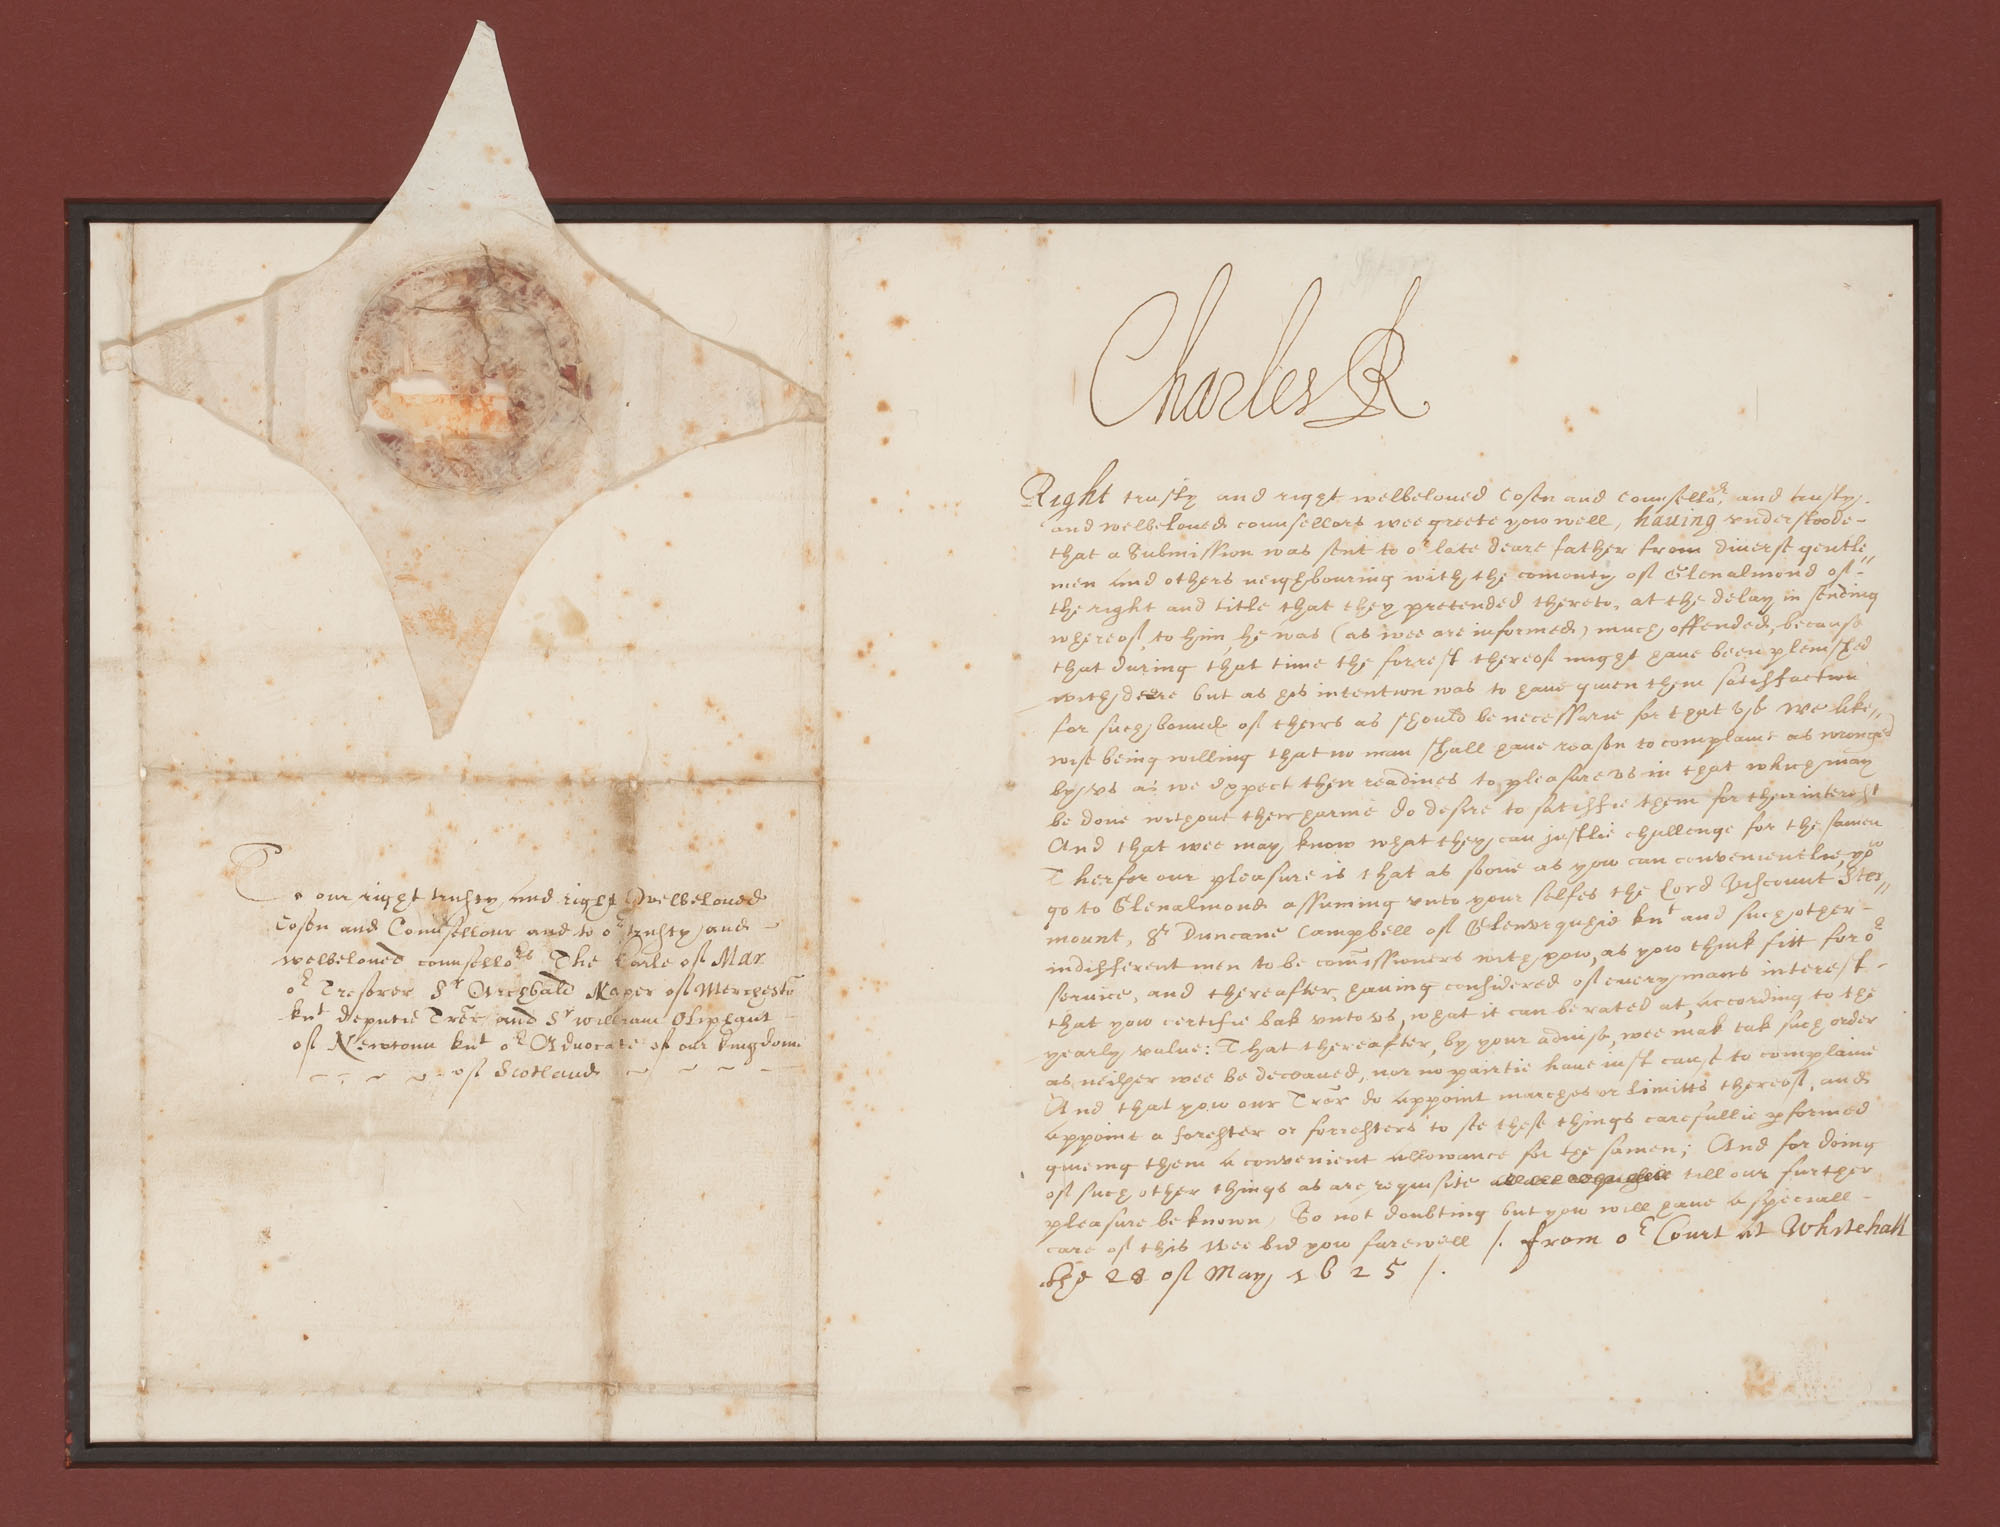 To our right trusty and right welbeloued
Cosen and Counsellour and to oʳ trusty and
welbeloued counselloʳˢ The Earle of Mar
oʳ Tresorer Sʳ Archbald Naper of Merchesto͠
knᵗ deputie Tre͠r and Sʳ william Oliphant
of Newtoun knᵗ oʳ Aduocate of our kingdome
of Scotland
Charles R
Right trusty and right welbeloued Cosen and Counselloʳ, and trusty
and welbeloued counsellors wee greete yow well, hauing vnderstoode
that a Submission was sent to oʳ late deare father from diuerse gentle„
men and others neighbouring with the comonty of Glenalmond of
the right and title that they pretended thereto, at the delay in sending
whereof to him, he was (as wee are informed) much offended, because
that during that time the forrest thereof might haue been plenished
with deere but as his intention was to haue giuen them satisfaction
for such bounds of theirs as should be necessarie for that vse we like„
wise being willing that no man shall haue reason to complaine as wronged
by vs as we expect their readines to pleasure vs in that which may
be done without their harme do desire to satisfie them for their interest
And that wee may know what they can justlie challenge for the samen
Therfor our pleasure is that as soone as yow can convenientlie, yoʷ
go to Glenalmond assuming vnto your selfes the Lord Viscount Stor„
mount, Sʳ Duncane Campbell of Glenorquhie knᵗ and such other
indifferent men to be com̄issioners with yow, as yow think fitt for oʳ
seruice, and thereafter, hauing considered of euery mans interest
that yow certifie bak vnto vs, what it can be rated at, according to the
yearly value: That thereafter, by your aduise, wee mak tak such order
as neither wee be deceaued, nor no pairtie haue iust cause to complaine
And that yow our Tre͠r do appoint marches or limitts thereof, and
appoint a forester or forresters to see these things carefullie ꝑformed
giueing them a convenient allowance for the samen; And for doing
of such other things as are requisite till our further
pleasure be known, So not doubting but yow will haue a speciall
care of this wee bid yow farewell /. from oʳ Court at Whitehall
the 28 of May 1625 /.